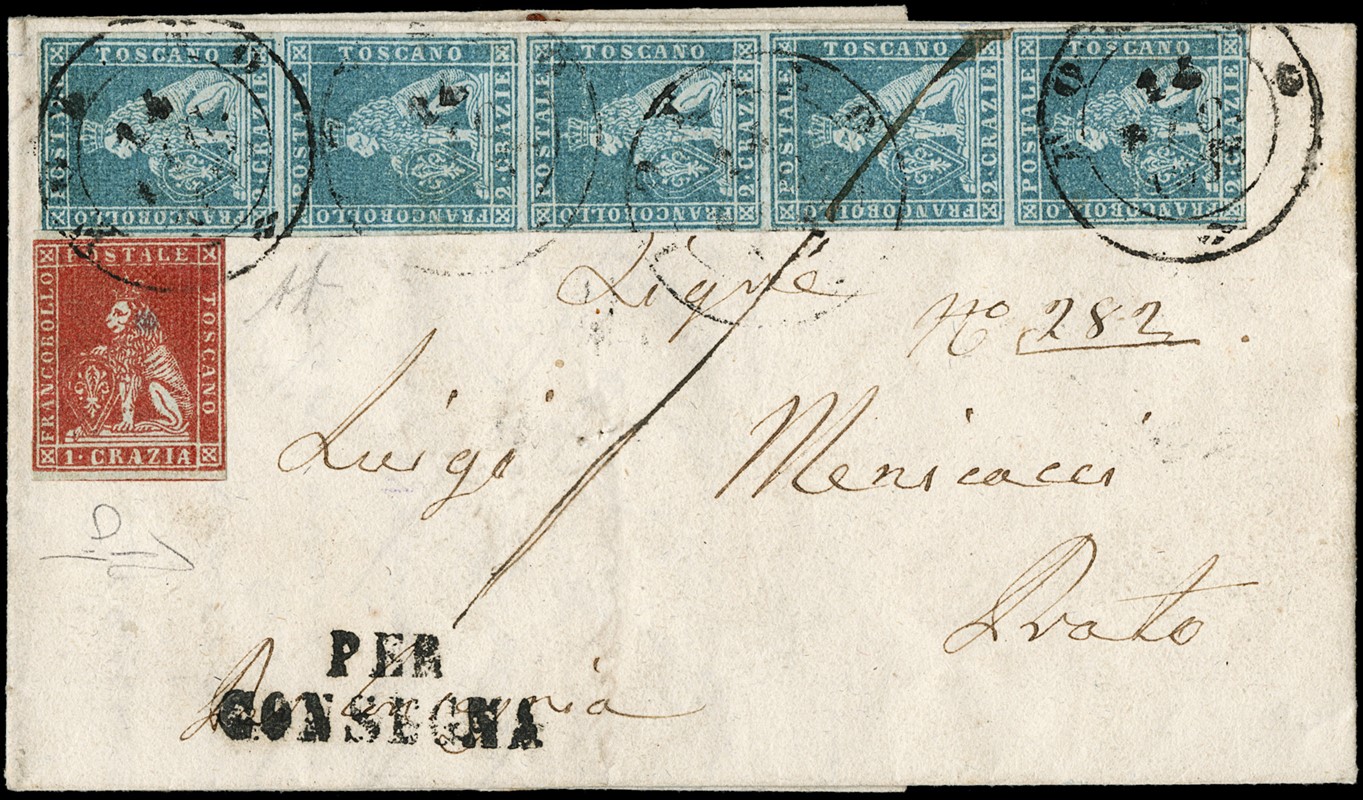 TOSCANO TOSCANO TOSCANO TOSCANO TOSCANO
POSTALE 2 CRAZIE POSTALE 2 CRAZIE POSTALE 2 CRAZIE POSTALE 2 CRAZIE POSTALE 2 CRAZIE
FRANCOBOLLO FRANCOBOLLO FRANCOBOLLO FRANCOBOLLO FRANCOBOLLO
POSTALE
FRANCOBOLLO TOSCANO
1·CRAZIA
Sigre
No 282.
Luigi Menicacci
Prato
PER
CONSEGNA